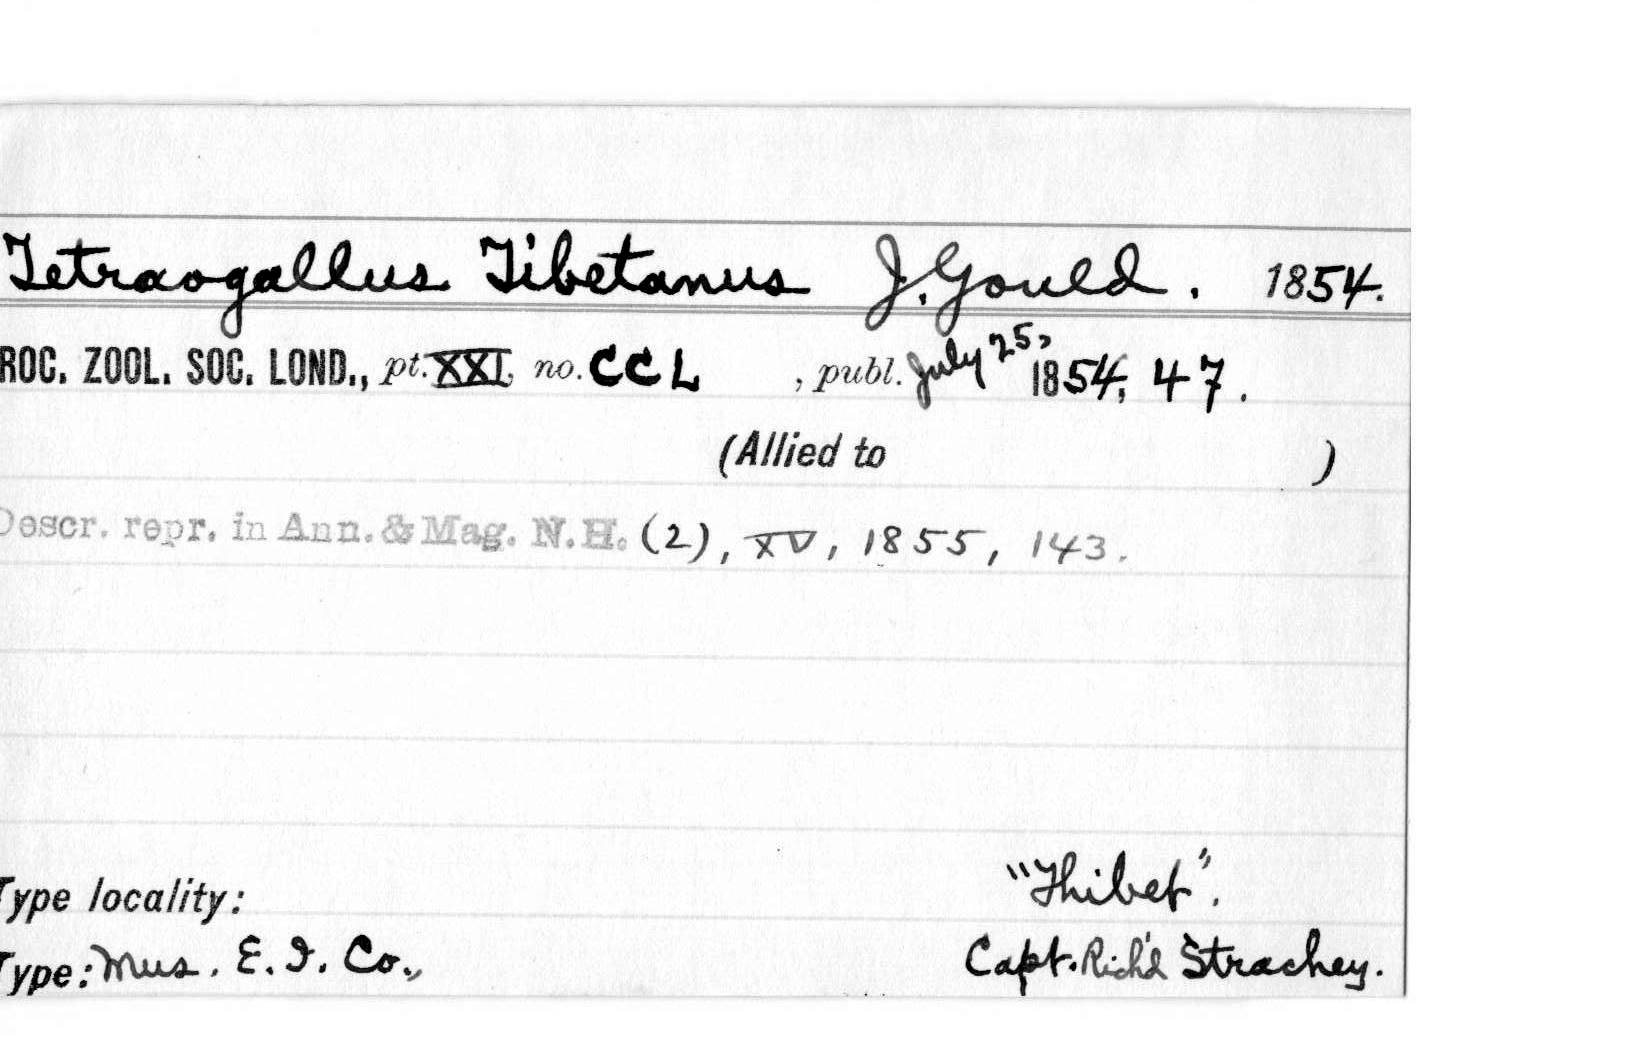 Tetraogallus Tibetanus J. Gould. 1854.
ROC. ZOOL. SOC. LOND., pt. XXI, no. CCL , publ. July 25, 1854, 47.
(Allied to )
Descr. repr. in Ann. & Mag. N.H. (2), XV, 1855, 143.
Type locality: "Thibet".
Type: Mus. E. I. Co., Capt. Rich'd Strachey.